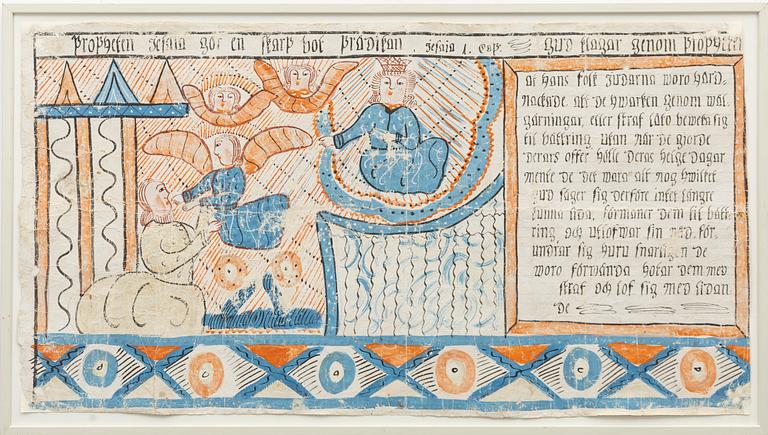 Propheten Jesaia gör en skarp bot Prädikan. Jesaia 1. Cap: Gud klagar genom Propheten
at hans folk Judarna woro hård,
nackade, at de hwarken genom wäl,
gärningar, eller straf låto beweka sig
til bättring utan når de giorde
derars offer hölle deras helge dagar
mente de det wara alt nog hwilket
Gud säger sig derföre intet längre
kunna lida, förmaner dem til bätt,
ring, och utlofwar sin nåd, för,
undrar sig huru snarligen de
woro förwända hotar dem med
straf och lof sig med sidan
de